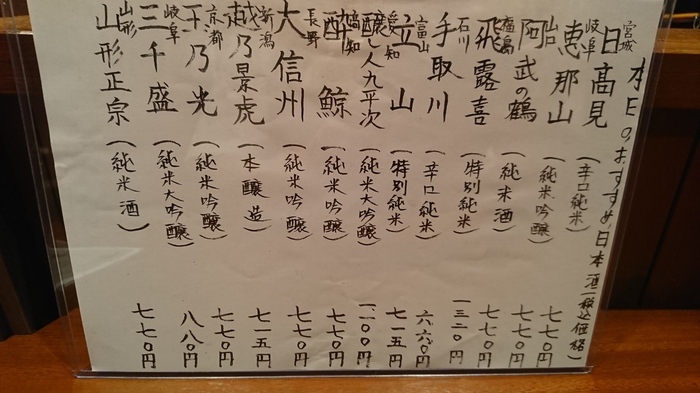 本日のおすすめ日本酒(税込価格)
宮城 日高見(辛口純米) 七七〇円
岐阜 恵那山(純米吟醸) 七七〇円
山口 阿武の鶴(純米酒) 七七〇円
福島 飛露喜(特別純米) 一三二〇円
石川 手取川(辛口純米) 六六〇円
富山 立山(特別純米) 七一五円
愛知 醸し人九平次(純米大吟醸) 一一〇〇円
高知 酔鯨(純米吟醸) 七七〇円
長野 大信州(純米吟醸) 七七〇円
新潟 越乃景虎(本醸造) 七一五円
京都 玉乃光(純米吟醸) 七七〇円
岐阜 三千盛(純米大吟醸) 八八〇円
山形 山形正宗(純米酒) 七七〇円